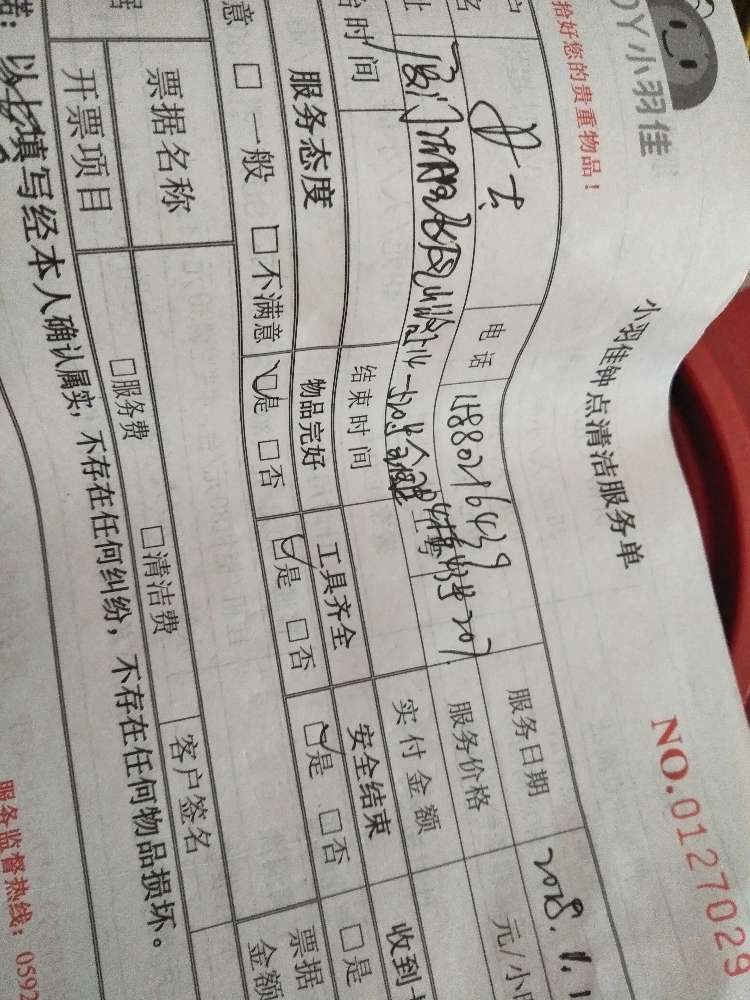 DY小羽佳
拾好您的贵重物品！
小羽佳钟点清洁服务单
NO.0127029
户 女士 电话 服务日期 2018.1.1
服务价格 元/小
时间 结束时间 实付金额
服务态度 物品完好 工具齐全 安全结束 收到
意 □一般 □不满意 ☑是 □否 ☑是 □否 ☑是 □否 □是
票据名称 客户签名 票据
金额
开票项目 □服务费 □清洁费
以上填写经本人确认属实，不存在任何纠纷，不存在任何物品损坏。
服务监督热线：0592